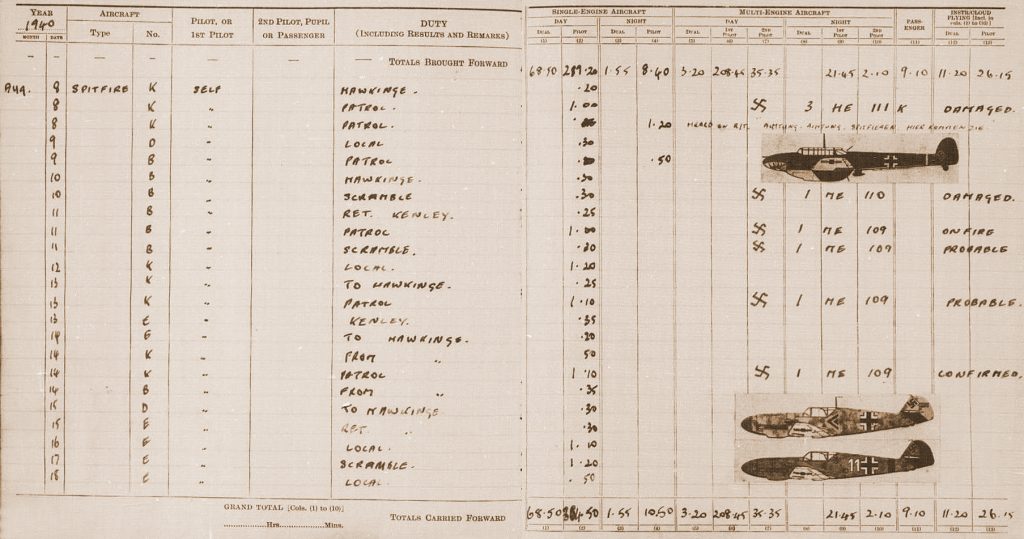 YEAR AIRCRAFT PILOT, OR 2ND PILOT, PUPIL DUTY SINGLE-ENGINE AIRCRAFT MULTI-ENGINE AIRCRAFT PASS- INSTR/CLOUD
1940 1ST PILOT OR PASSENGER (INCLUDING RESULTS AND REMARKS) DAY NIGHT DAY NIGHT ENGER FLYING [Incl. in cols. (1) to (10)]
MONTH DATE Type No. DUAL PILOT DUAL PILOT DUAL 1ST PILOT 2ND PILOT DUAL 1ST PILOT 2ND PILOT DUAL PILOT
(1) (2) (3) (4) (5) (6) (7) (8) (9) (10) (11) (12) (13)
— — — — — — TOTALS BROUGHT FORWARD 68.50 289.20 1.55 8.40 3.20 208.45 35.35 21.45 2.10 9.10 11.20 26.15
AUG. 8 SPITFIRE K SELF HAWKINGE. .20
8 K " PATROL. 1.00 卐 3 ME 111 K DAMAGED.
8 K " PATROL. 1.20 HEARD ON R/T. ACHTUNG. ACHTUNG. SPITFIEREN HIER KOMMEN SIE
9 D " LOCAL .30
9 B " PATROL .50
10 B " HAWKINGE. .30
10 B " SCRAMBLE .30 卐 1 ME 110 DAMAGED.
11 B " RET. KENLEY. .25
11 B " PATROL 1.00 卐 1 ME 109 ON FIRE
11 B " SCRAMBLE. 卐 1 ME 109 PROBABLE
12 K " LOCAL. 1.20
13 K " TO HAWKINGE. .25
13 K " PATROL 1.10 卐 1 ME 109 PROBABLE.
13 E " KENLEY. .35
14 E " TO HAWKINGE. .20
14 K " FROM " 50
14 K " PATROL 1.10 卐 1 ME 109 CONFIRMED.
14 B " FROM " .35
15 D " TO HAWKINGE .30
15 E " RET. " .30
16 E " LOCAL. 1.10
17 E " SCRAMBLE. 1.20
18 E " LOCAL. .50
11
GRAND TOTAL [Cols. (1) to (10)]
..........Hrs..........Mins.
TOTALS CARRIED FORWARD 68.50 1.55 10.50 3.20 208.45 35.35 21.45 2.10 9.10 11.20 26.15
(1) (2) (3) (4) (5) (6) (7) (8) (9) (10) (11) (12) (13)